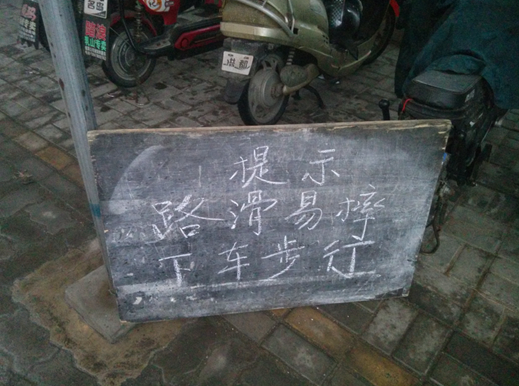 提示
路滑易摔
下车步行